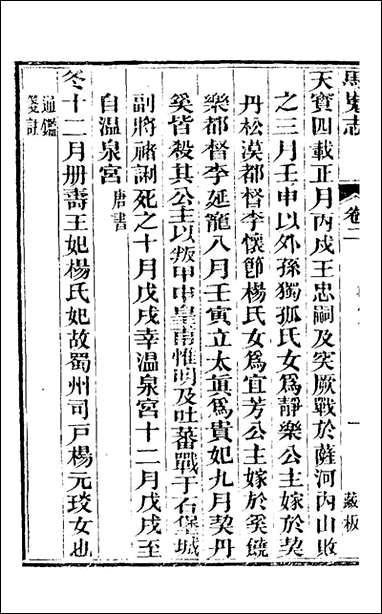 馬嵬志
卷二
一
藏板
天寶四載正月丙戌王忠嗣及突厥戰於薩河內山敗
之三月壬申以外孫獨孤氏女爲靜樂公主嫁於契
丹松漠都督李懷節楊氏女爲宜芳公主嫁於奚饒
樂都督李延寵八月壬寅立太眞爲貴妃九月契丹
奚皆殺其公主以叛甲申皇甫惟明及吐蕃戰于石堡城
副將褚誗死之十月戊戌幸溫泉宮十二月戊戌至
自溫泉宮唐書
冬十二月册壽王妃楊氏妃故蜀州司戶楊元琰女也
通鑑
箋註